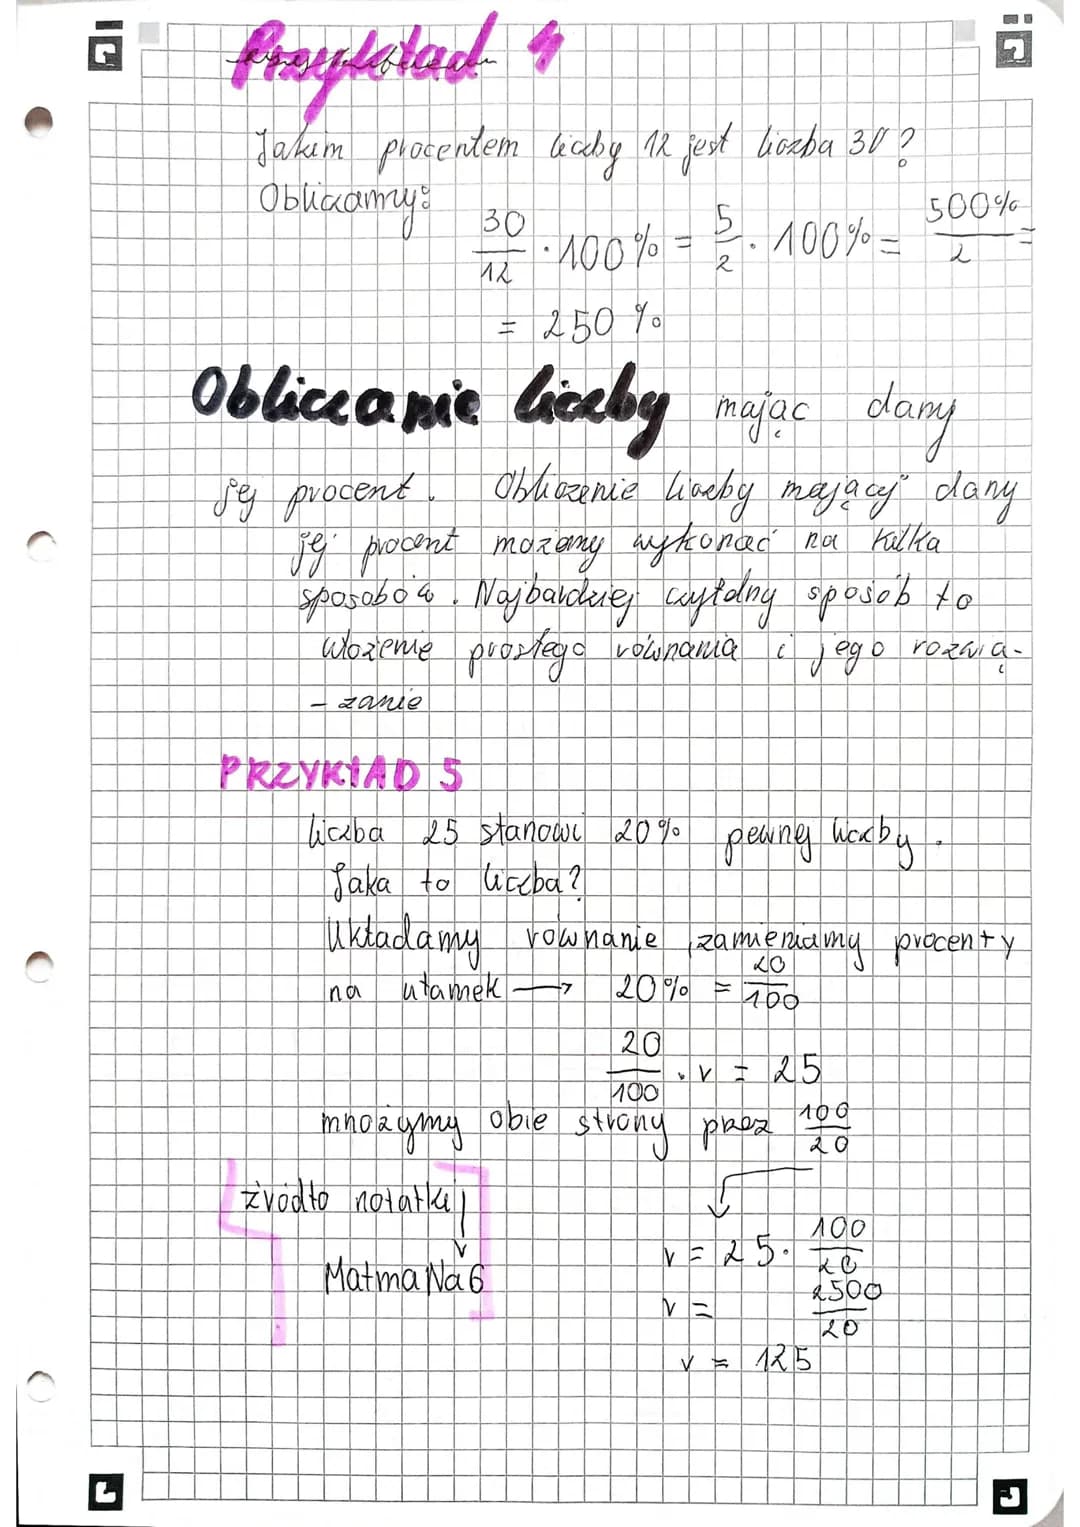 Przykład 4
Jakim procentem liczby 12 jest liczba 30?
Obliczamy:
30/12 · 100% = 5/2 · 100% = 500%/2 =
= 250 %
Obliczanie liczby mając dany
jej procent. Obliczenie liczby mający dany
jej procent możemy wykonać na kilka
sposobów. Najbardziej czytelny sposób to
ułożenie prostego równania i jego rozwią-
- zanie
PRZYKŁAD 5
liczba 25 stanowi 20% pewnej liczby.
Jaka to liczba?
Układamy równanie, zamieniamy procenty
na ułamek → 20% = 20/100
20/100 · v = 25
mnożymy obie strony przez 100/20
v = 25 · 100/20
v = 2500/20
v = 125
źródło notatki
MatmaNa6